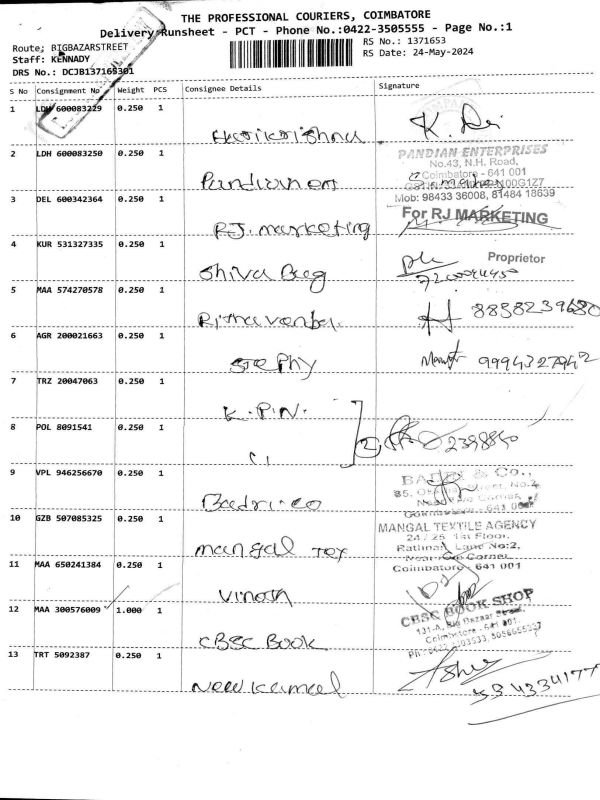 THE PROFESSIONAL COURIERS, COIMBATORE
Delivery Runsheet - PCT - Phone No.:0422-3505555 - Page No.:1
Route; BIGBAZARSTREET RS No.: 1371653
Staff: KENNADY RS Date: 24-May-2024
DRS No.: DCJB137165301
S No Consignment No Weight PCS Consignee Details Signature
1 LDH 600083229 0.250 1 Harikrishna K. Dei
2 LDH 600083250 0.250 1 Pandian en
PANDIAN ENTERPRISES
No.43, N.H. Road,
Coimbatore - 641 001
Mob: 98433 36008, 81484 18639
3 DEL 600342364 0.250 1 R.J. marketing
For RJ MARKETING
Proprietor
4 KUR 531327335 0.250 1 Shiva Bag
5 MAA 574270578 0.250 1 8838239680
6 AGR 200021663 0.250 1 Stephy 9994327942
7 TRZ 20047063 0.250 1 K.P.N.
8 POL 8091541 0.250 1 2398840
9 VPL 946256670 0.250 1 Badri co
BADRI & Co.,
10 GZB 507085325 0.250 1 mangal Tex
MANGAL TEXTILE AGENCY
24 / 25 1st Floor,
Ratinam Lane No:2,
Near Five Corner
Coimbatore - 641 001
11 MAA 650241384 0.250 1 Vinoth
12 MAA 300576009 1.000 1 CBSC Book
CBSC BOOK SHOP
131-A, Big Bazaar Street,
Coimbatore - 641 001.
13 TRT 5092387 0.250 1 New Kamal